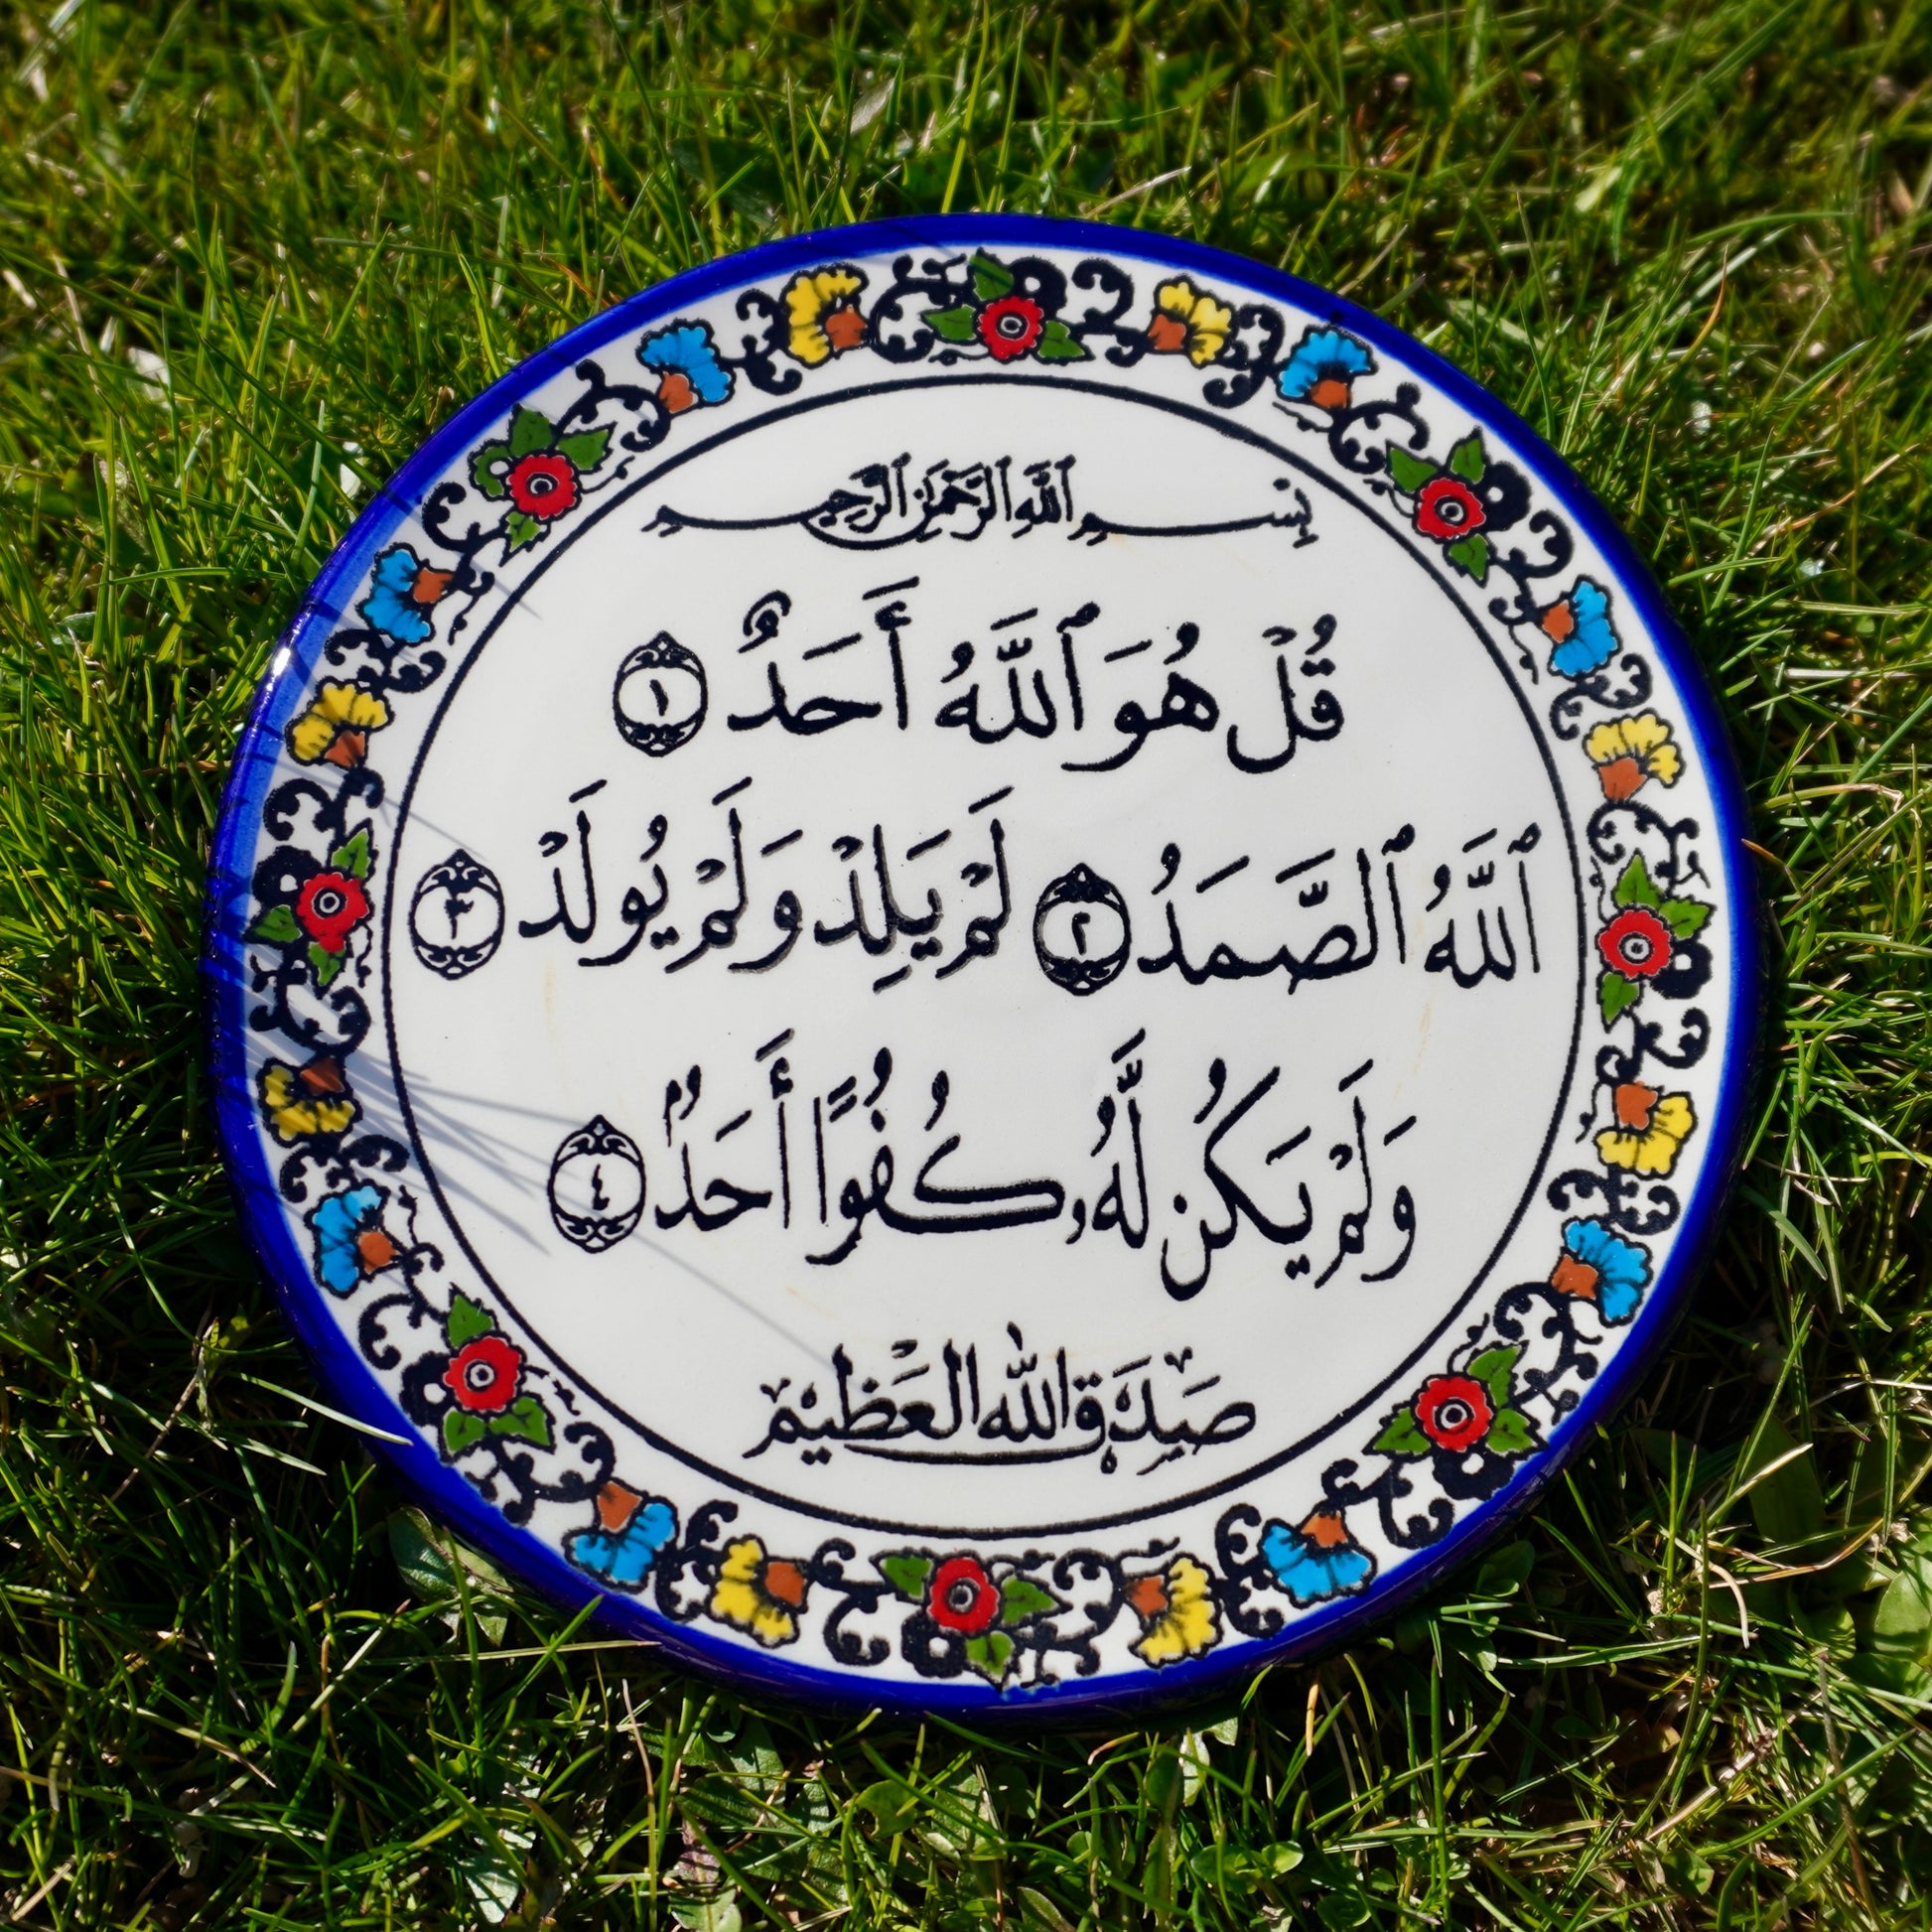 بِسْمِ ٱللَّهِ ٱلرَّحْمَٰنِ ٱلرَّحِيمِ
قُلْ هُوَ ٱللَّهُ أَحَدٌ ١
ٱللَّهُ ٱلصَّمَدُ ٢ لَمْ يَلِدْ وَلَمْ يُولَدْ ٣
وَلَمْ يَكُن لَّهُۥ كُفُوًا أَحَدٌۢ ٤
صَدَقَ اللّٰه العَظيم